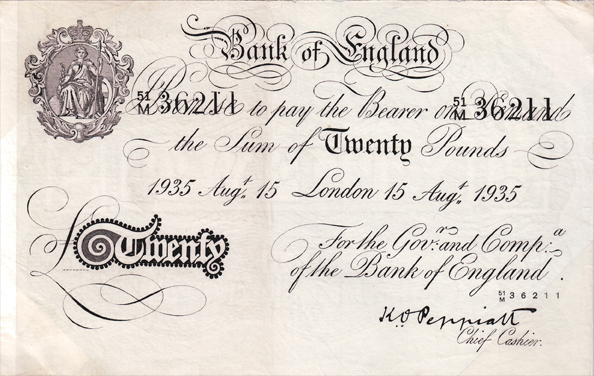 Bank of England
51/M 36211 Promise to pay the Bearer on Demand 51/M 36211
the Sum of Twenty Pounds
1935 Augt. 15 London 15 Augt. 1935
£ Twenty
For the Govr. and Compa.
of the Bank of England.
51/M 36211
K.O. Peppiatt
Chief Cashier.